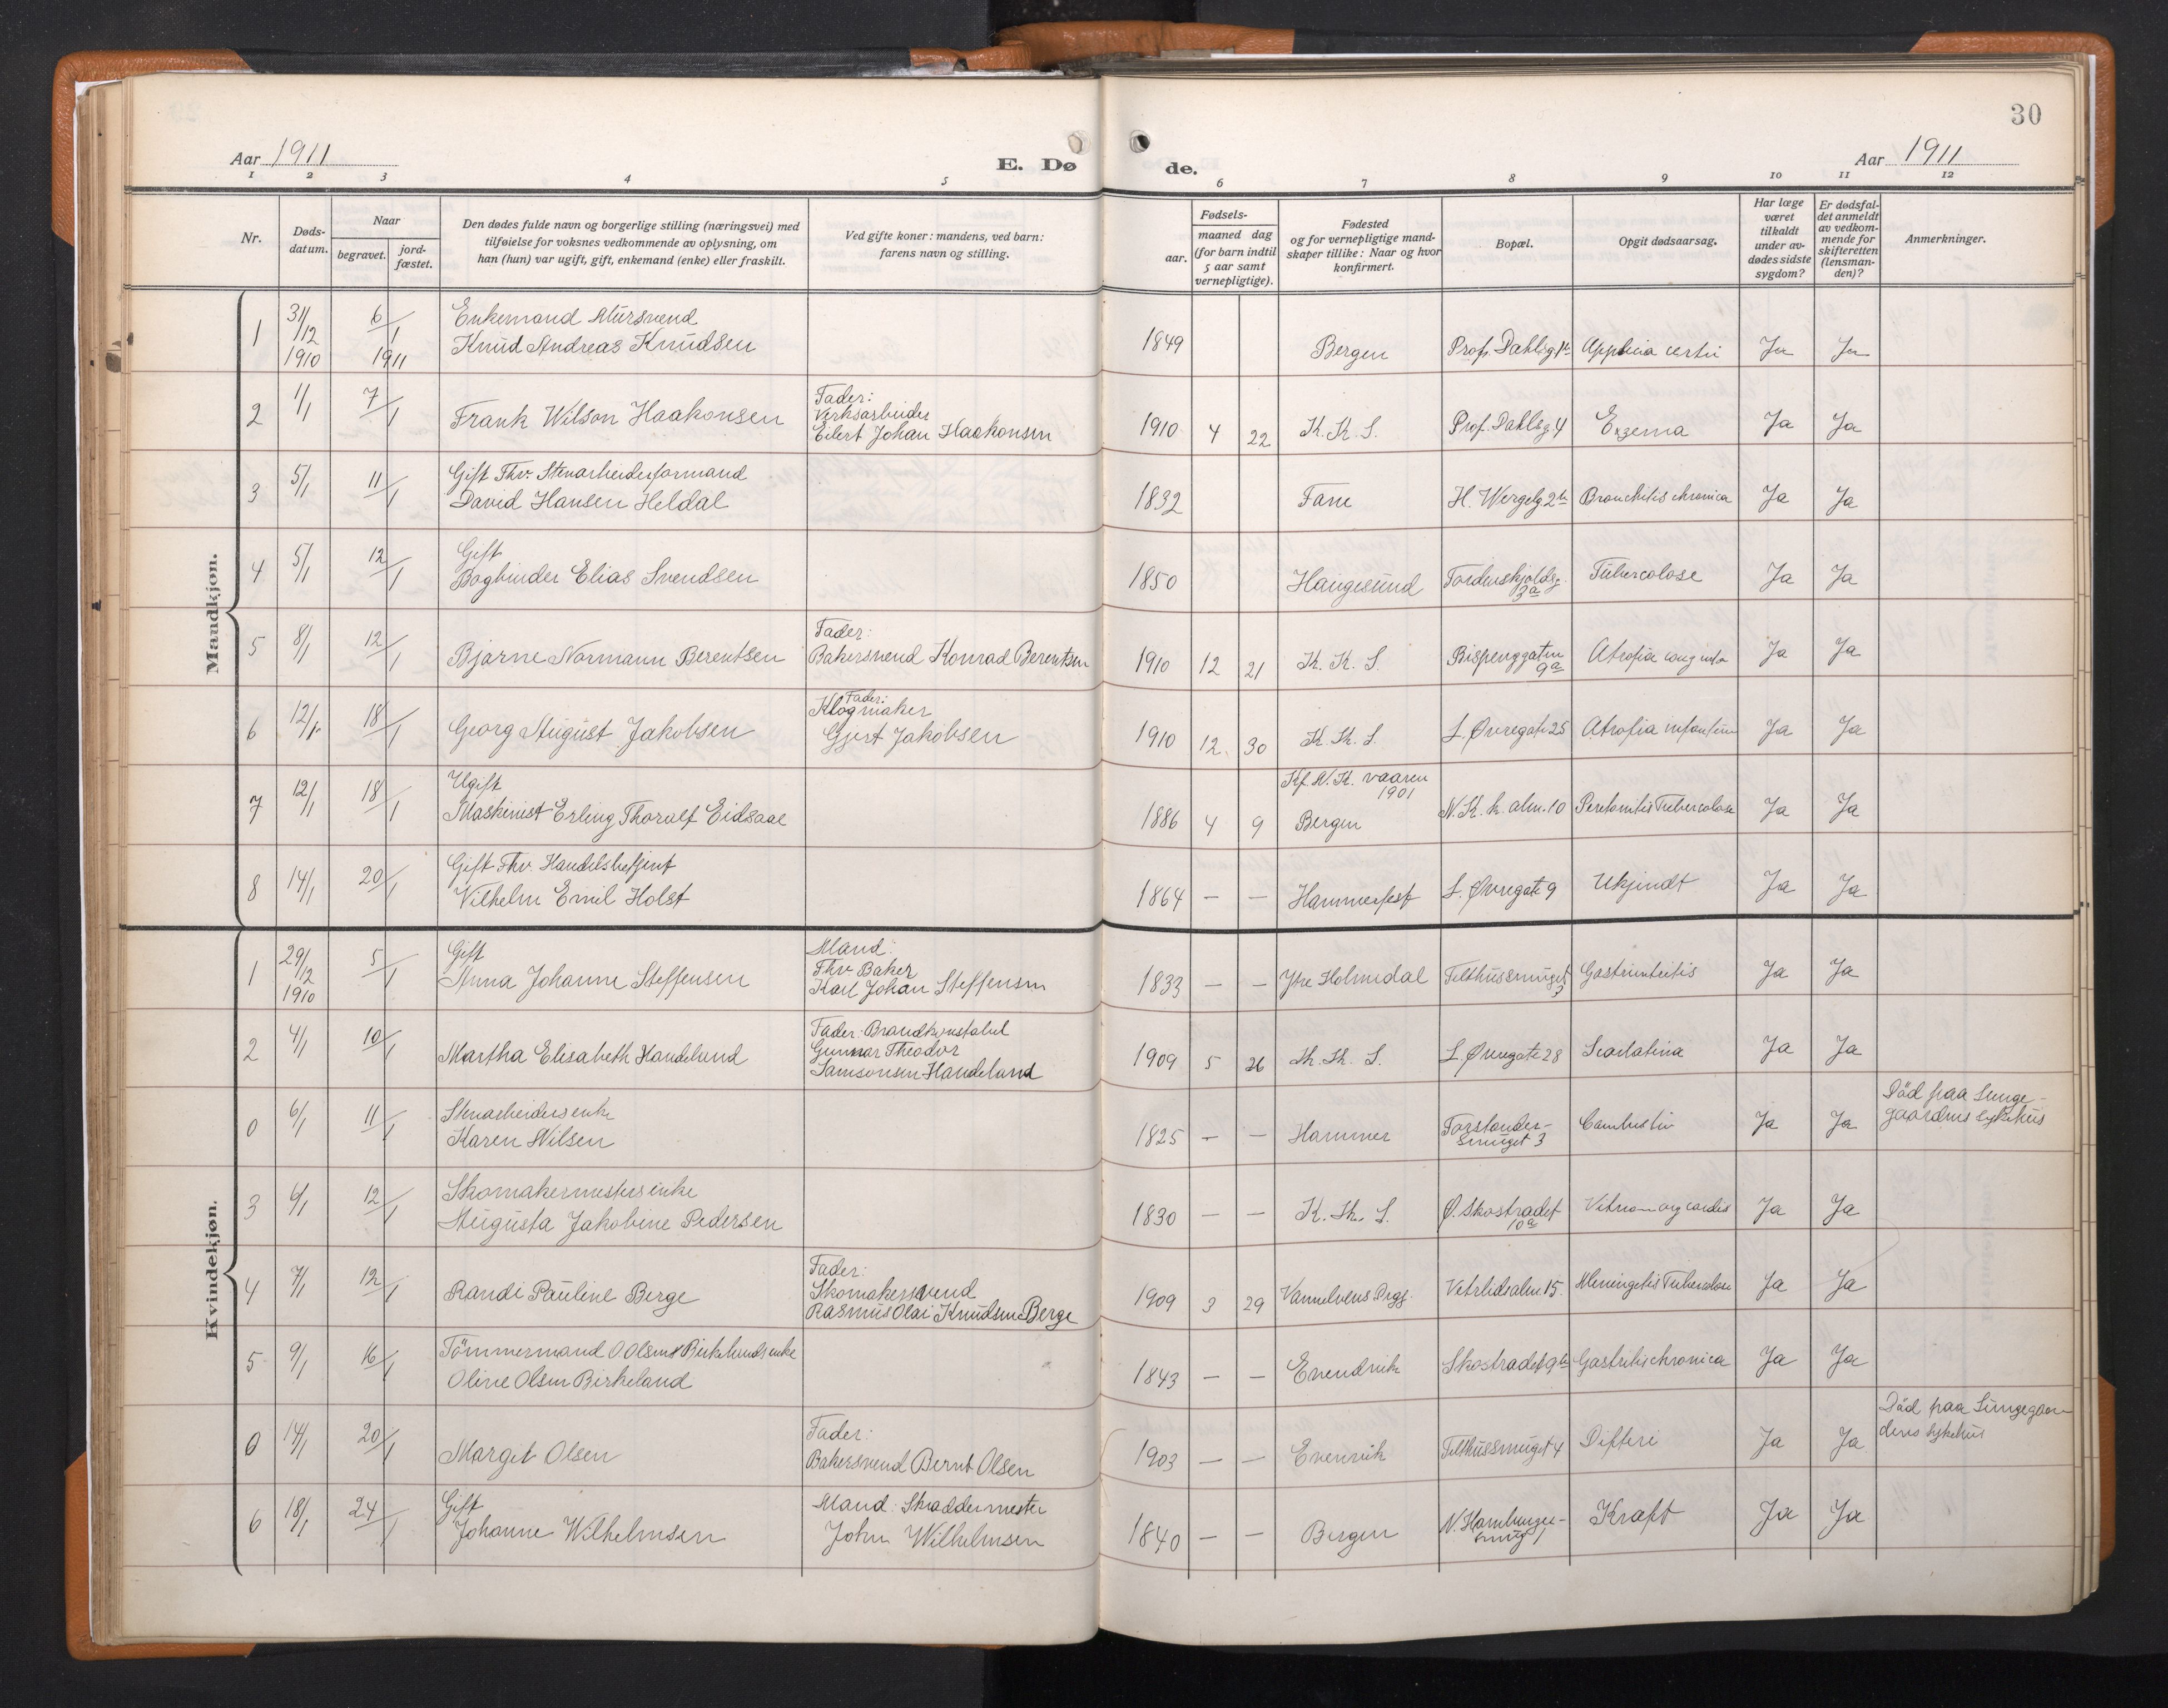 30
Aar 1911
E. Dø
de.
Aar 1911
1 2 3 4 5 6 7 8 9 10 11 12
Nr.
Døds-
datum.
Naar
begravet.
jord-
fæstet.
Den dødes fulde navn og borgerlige stilling (næringsvei) med
tilføielse for voksnes vedkommende av oplysning, om
han (hun) var ugift, gift, enkemand (enke) eller fraskilt.
Ved gifte koner: mandens, ved barn:
farens navn og stilling.
Fødsels-
aar.
maaned dag
(for barn indtil
5 aar samt
vernepligtige).
Fødested
og for vernepligtige mand-
skaper tillike: Naar og hvor
konfirmert.
Bopæl.
Opgit dødsaarsag.
Har læge
været
tilkaldt
under av-
dødes sidste
sygdom?
Er dødsfal-
det anmeldt
av vedkom-
mende for
skifteretten
(lensman-
den)?
Anmerkninger.
Mandkjøn.
1 31/12 1910 6/1 1911
Enkemand Mursvend
Knud Andreas Knudsen
1849 Bergen Prof. Dahlsg 1b Ja Ja
2 1/1 7/1
Frank Wilson Haakonsen
Fader:
Verksarbeider
Eilert Johan Haakonsen
1910 4 22 K. K. S. Prof. Dahlsg. 4 Exzema Ja Ja
3 5/1 11/1
Gift Fhv. Stenarbeiderformand
David Hansen Heldal
1832 Fane H. Wergelg. 2b Bronchitis chronica Ja Ja
4 5/1 12/1
Gift
Bogbinder Elias Svendsen
1850 Haugesund Tordenskjoldsg. 3a Tubercolose Ja Ja
5 8/1 12/1
Bjarne Normann Berentsen
Fader:
Bakersvend Konrad Berentsen
1910 12 21 K. K. S. Bispenggaten 9a Atrofia Ja Ja
6 12/1 18/1
Georg August Jakobsen
Fader:
Klogmaker
Gjert Jakobsen
1910 12 30 K. K. S. L. Øvregate 25 Atrofia infantum Ja Ja
7 12/1 18/1
Ugift
Maskinist Erling Thorolf Eidsaae
1886 4 9
Kf. N. K. vaaren
1901
Bergen N. K. k. alm. 10 Peritonitis Tubercolose Ja Ja
8 14/1 20/1
Gift Fhv. Handelsbetjent
Vilhelm Emil Holst
1864 – – Hammerfest L. Øvregate 9 Ukjendt Ja Ja
Kvindekjøn.
1 29/12 1910 5/1
Gift
Anna Johanne Steffensen
Mand:
Fhv Baker
Karl Johan Steffensen
1833 – – Ytre Holmedal Telthussmuget 3 Gastrointritis Ja Ja
2 4/1 10/1
Martha Elisabeth Handeland
Fader: Brandkonstabel
Gunnar Theodor
Samsonsen Handeland
1909 5 26 K. K. S. L. Øvregate 28 Scarlatina Ja Ja
0 6/1 11/1
Stenarbeidersenke
Karen Nilsen
1825 – – Hammer Forstander-
smuget 3 Combustio Ja Ja
Död paa Lunge-
gaardens sykehus
3 6/1 12/1
Skomakermestersenke
Augusta Jakobine Pedersen
1830 – – K. K. S. Ø. Skostrædet 10a Vitium org cordis Ja Ja
4 7/1 12/1
Randi Pauline Berge
Fader:
Skomakersvend
Rasmus Olai Knudsen Berge
1909 3 29 Vannelvens Prgj. Vetrlidsalm 15. Meningitis Tubercolose Ja Ja
5 9/1 16/1
Tömmermand O Olsen Birkelands enke
Oline Olsen Birkeland
1843 – – Evendvik Skostrædet 9b Gastritis chronica Ja Ja
0 14/1 20/1
Marget Olsen
Fader:
Bakersvend Bernt Olsen
1903 – – Evenvik Telthussmuget 4 Difteri Ja Ja
Död paa Lungegaar-
dens sykehus
6 18/1 24/1
Gift
Johanne Wilhelmsen
Mand: Skræddermester
John Wilhelmsen
1840 – – Bergen N. Hamburger-
smug 1 Kræft Ja Ja